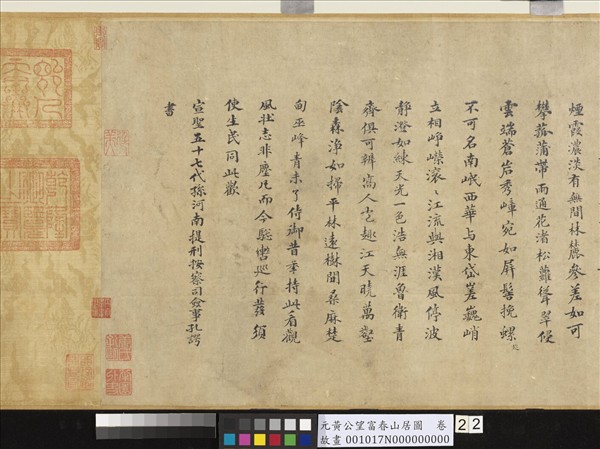 煙霞濃淡有無間林麓參差如可
攀菰蒲帶雨通花渚松蘿聳翠侵
雲端蒼岩秀嶂宛如屏髻挽螺
不可名南岷西華与東岱嵳巍峭
立相崢嶸滾〻江流與湘漢風停波
靜澄如練天光一色浩無涯魯衛青
齊俱可辨寓人乞趣江天曉萬壑
陰森淨如掃平林遠樹間桑麻楚
甸巫峰青未了侍御昔年持此看觀
風壮志非塵凡而今驄轡巡行發須
使生民同此歡
宣聖五十七代孫河南提刑按察司僉事孔諤
書
元黃公望富春山居圖 卷 22
故畫 001017N000000000